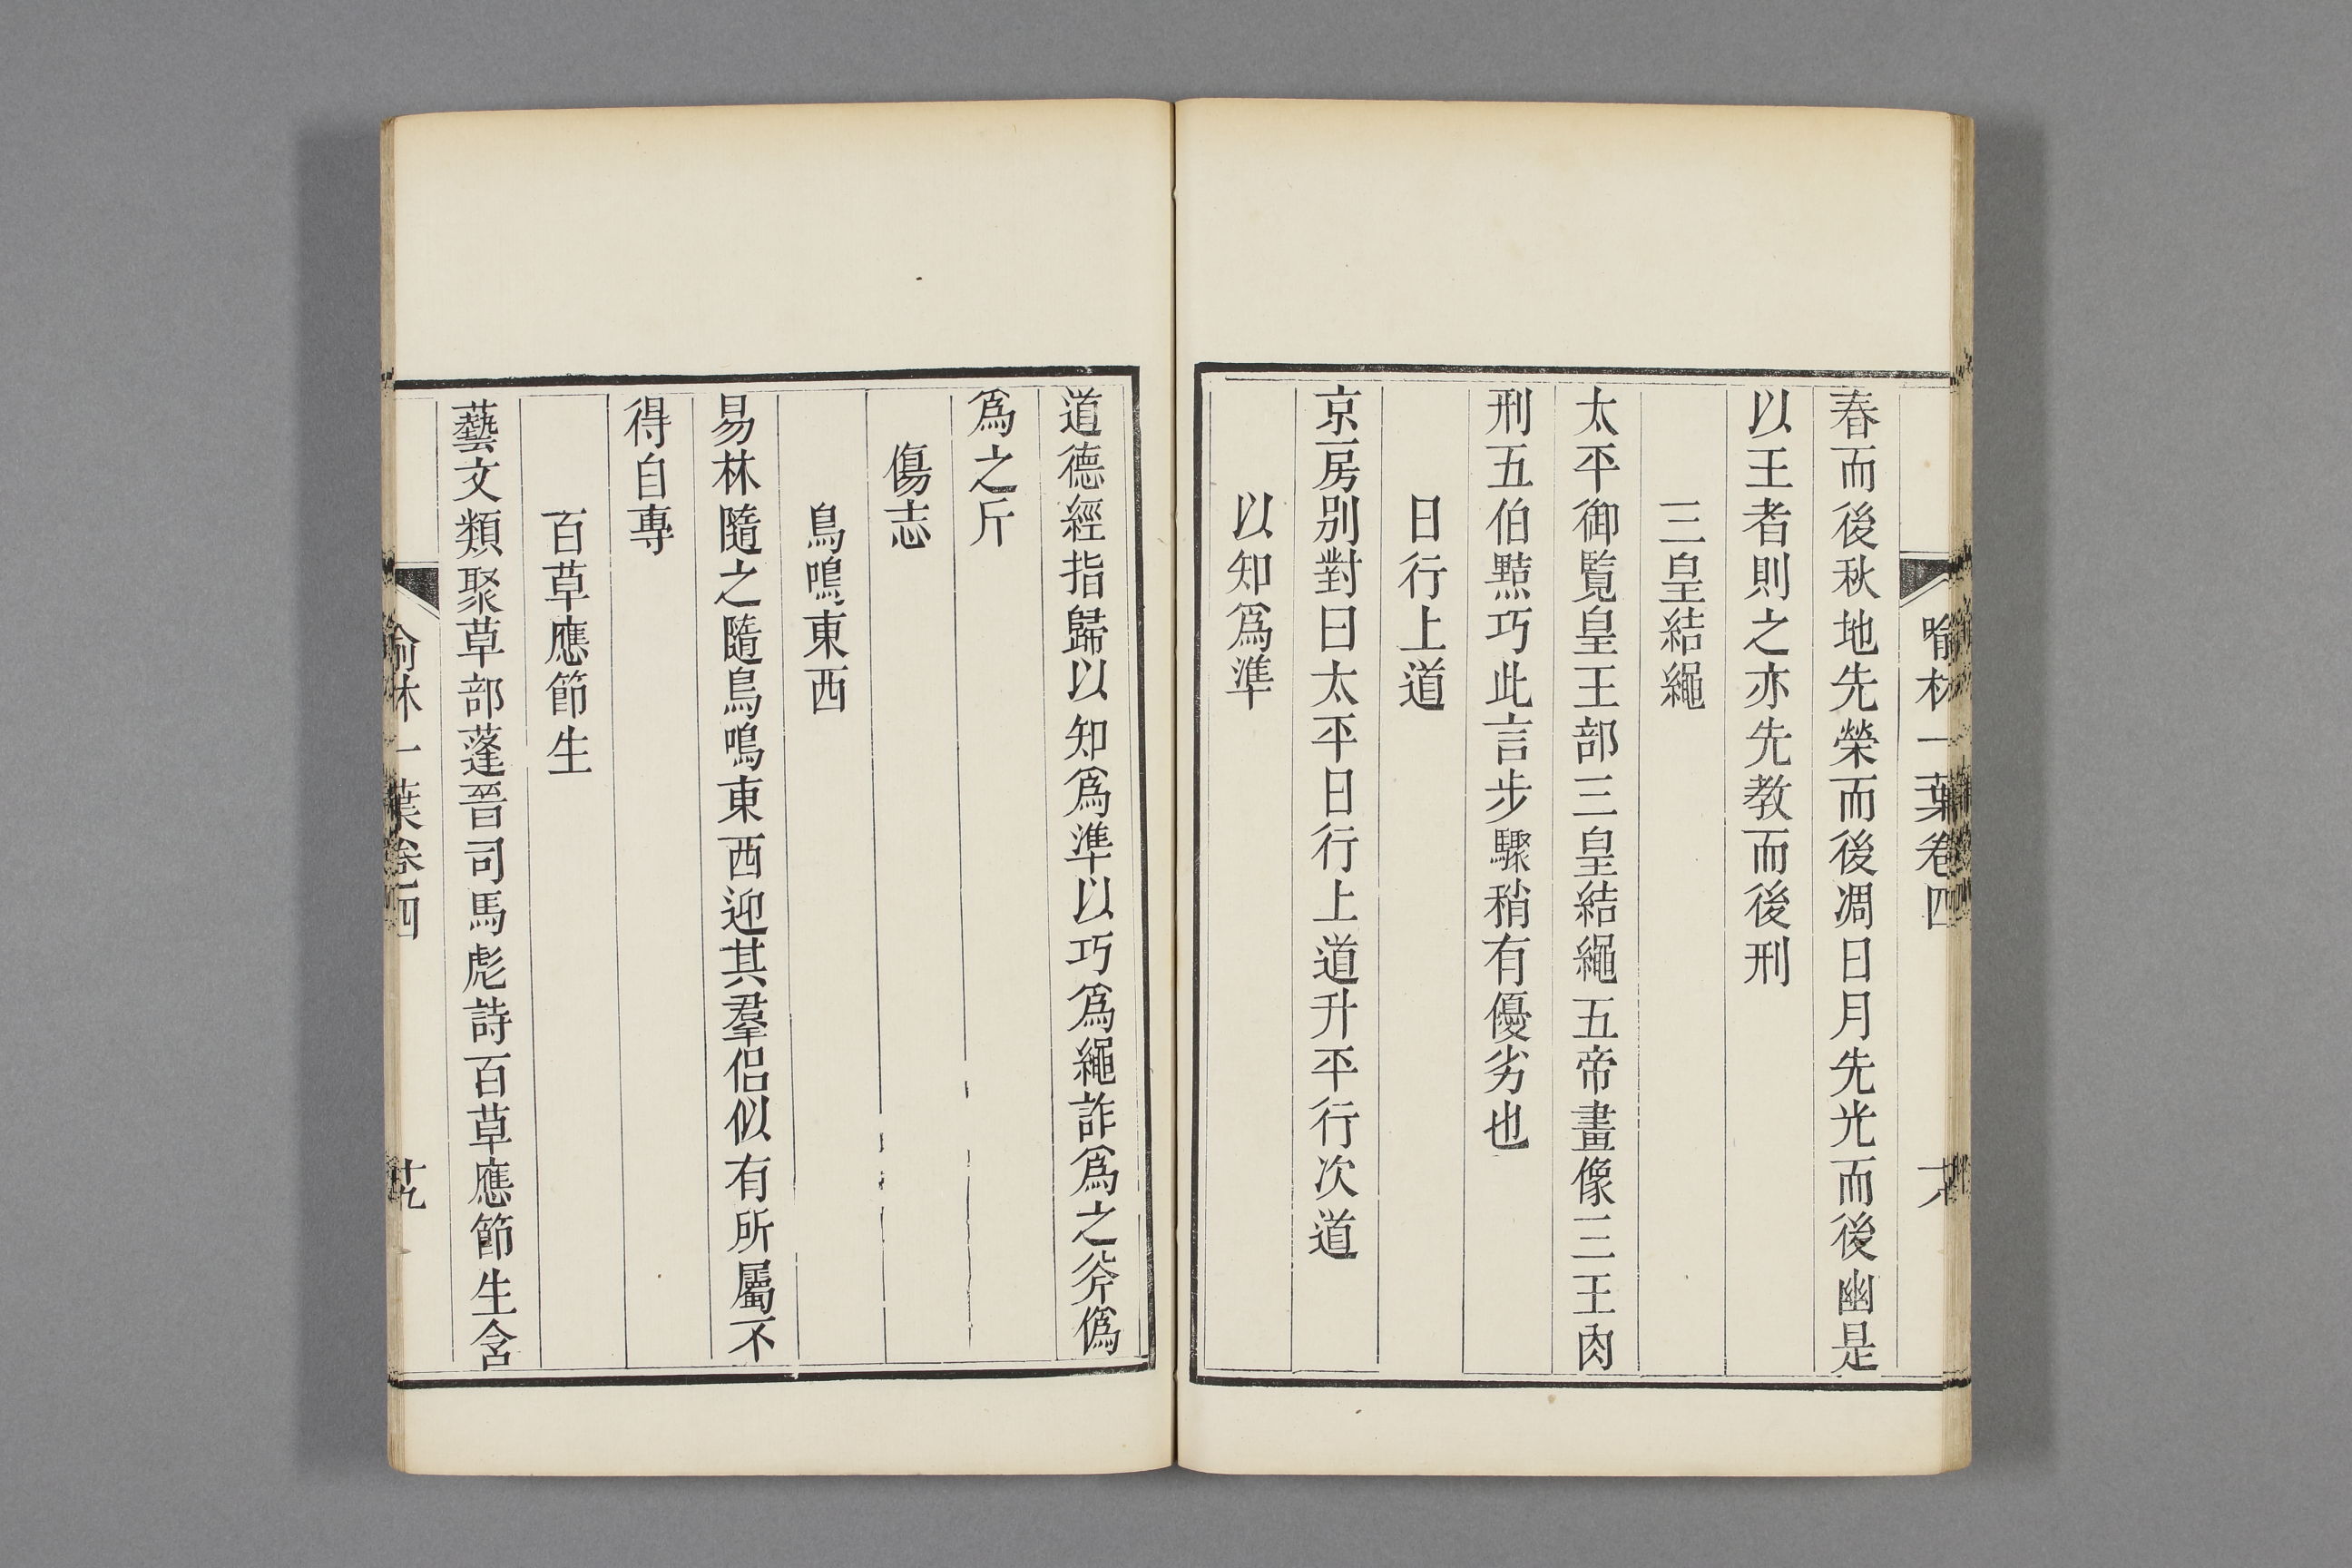 喻林一葉卷四
春而後秋地先榮而後凋日月先光而後幽是
以王者則之亦先教而後刑
三皇結繩
太平御覧皇王部三皇結繩五帝畫像三王肉
刑五伯黠巧此言步驟稍有優劣也
日行上道
京房別對曰太平日行上道升平行次道
以知爲準
道德經指歸以知爲準以巧爲繩詐爲之斧僞
爲之斤
傷志
鳥鳴東西
易林隨之隨鳥鳴東西迎其羣侶似有所屬不
得自專
百草應節生
藝文類聚草部蓬晉司馬彪詩百草應節生含
喻林一葉卷四